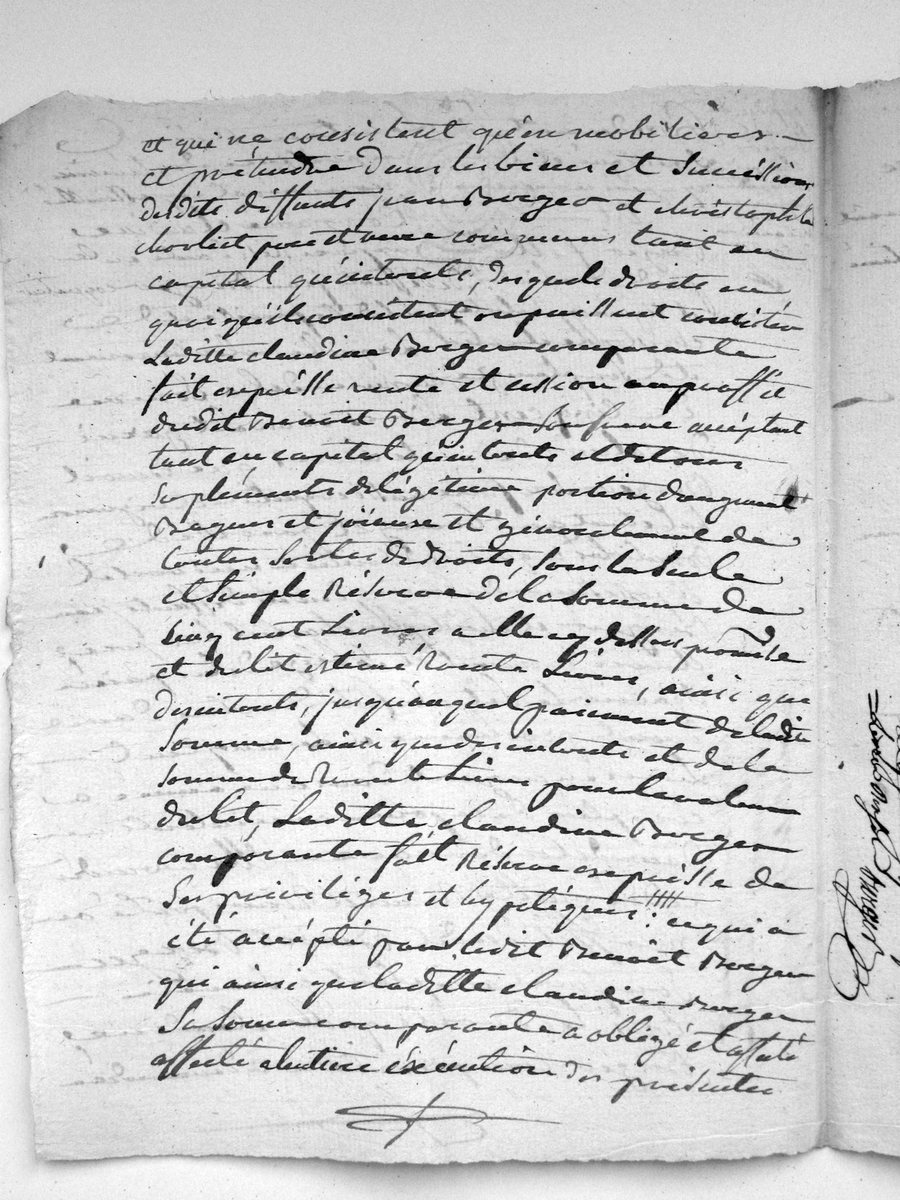 et qui ne consistent qu'en mobiliers
et prétendre dans les biens et Succéssions
desdits deffunts jean Berger et christophlette
chorliet pere et mere communs tant en
capital qu'interets, des quels droits en
quoi qu'ils consistent ou puissent consister
Laditte claudine Berger comparante
fait expresse vente et cession au proffit
dudit Benoit Berger Son frere accéptant
tant en capital qu'interets et de tous
Supléments de légitime portion d'augment
Bagues et joïeuse et généralement de
toutes Sortes de droits, Sous la Seule
et Simple Réserve de la Somme de
Cinq cent Livres a elle cy dessus promise
et du lit estimé trente Livres, ainsi que
des interets, jusqu'au quel paiement de ladite
Somme, ainsi que des interets et de la
Somme de trente Livres pour la valeur
du lit, Laditte claudine Berger
comparante fait Réserve expresse de
Ses priviléges et hypotéques !!!! ce qui a
été accépté par ledit Benoit Berger
qui ainsi que laditte claudine Berger
Sa Soeur comparante a obligé et affecté
affecté a l'entiere éxécution des présentes